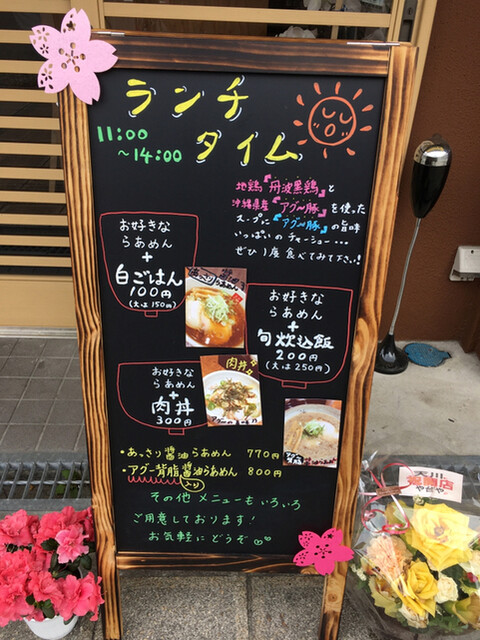 ランチ
タイム
11:00
～14:00
地鶏『丹波黒鶏』と
沖縄県産『アグー豚』を使った
スープに『アグー豚』の旨味
いっぱいのチャーシュー…
ぜひ1度食べてみて下さい!
お好きな
らあめん
+
白ごはん
100円
(大は150円)
お好きな
らあめん
+
旬炊込飯
200円
(大は250円)
お好きな
らあめん
+
肉丼
300円
肉丼
・あっさり醤油らあめん 770円
・アグー背脂醤油らあめん 800円
入り
その他メニューもいろいろ
ご用意しております!
お気軽にどうぞ